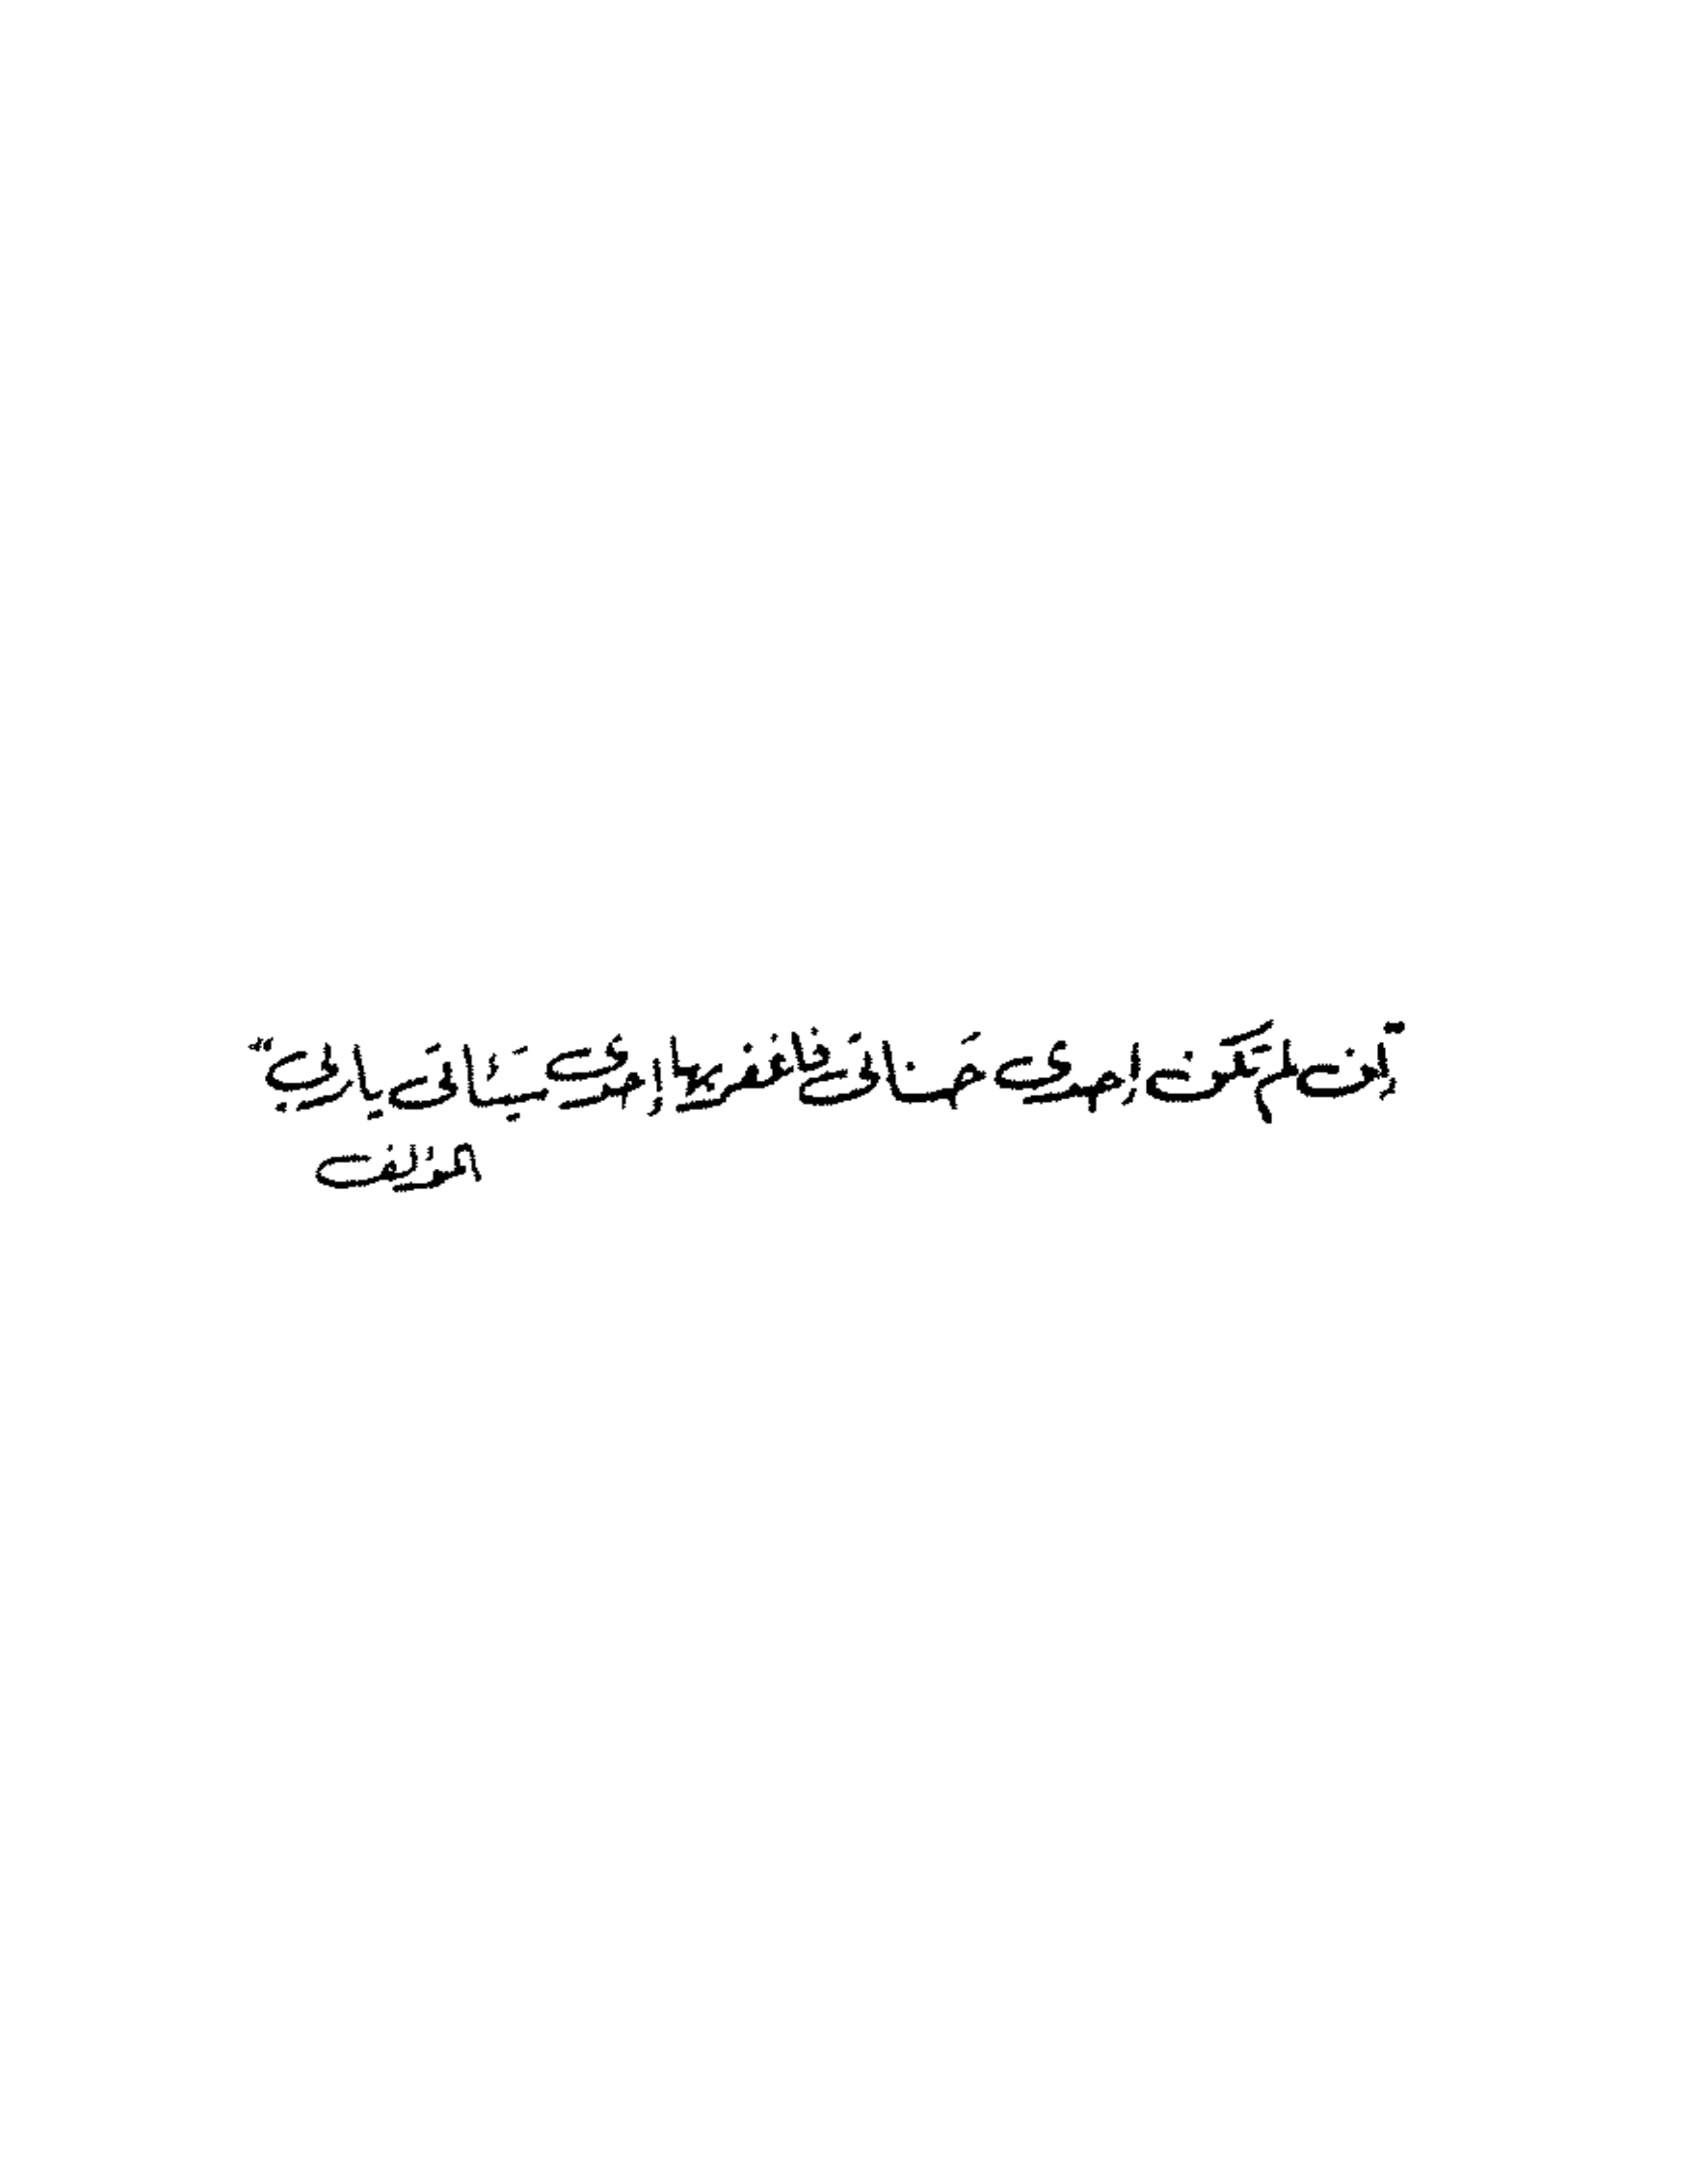 "إن لم تكن إحدى حسناتي فاغفرها إحدى سيئاتي يا ربي"
المؤلف